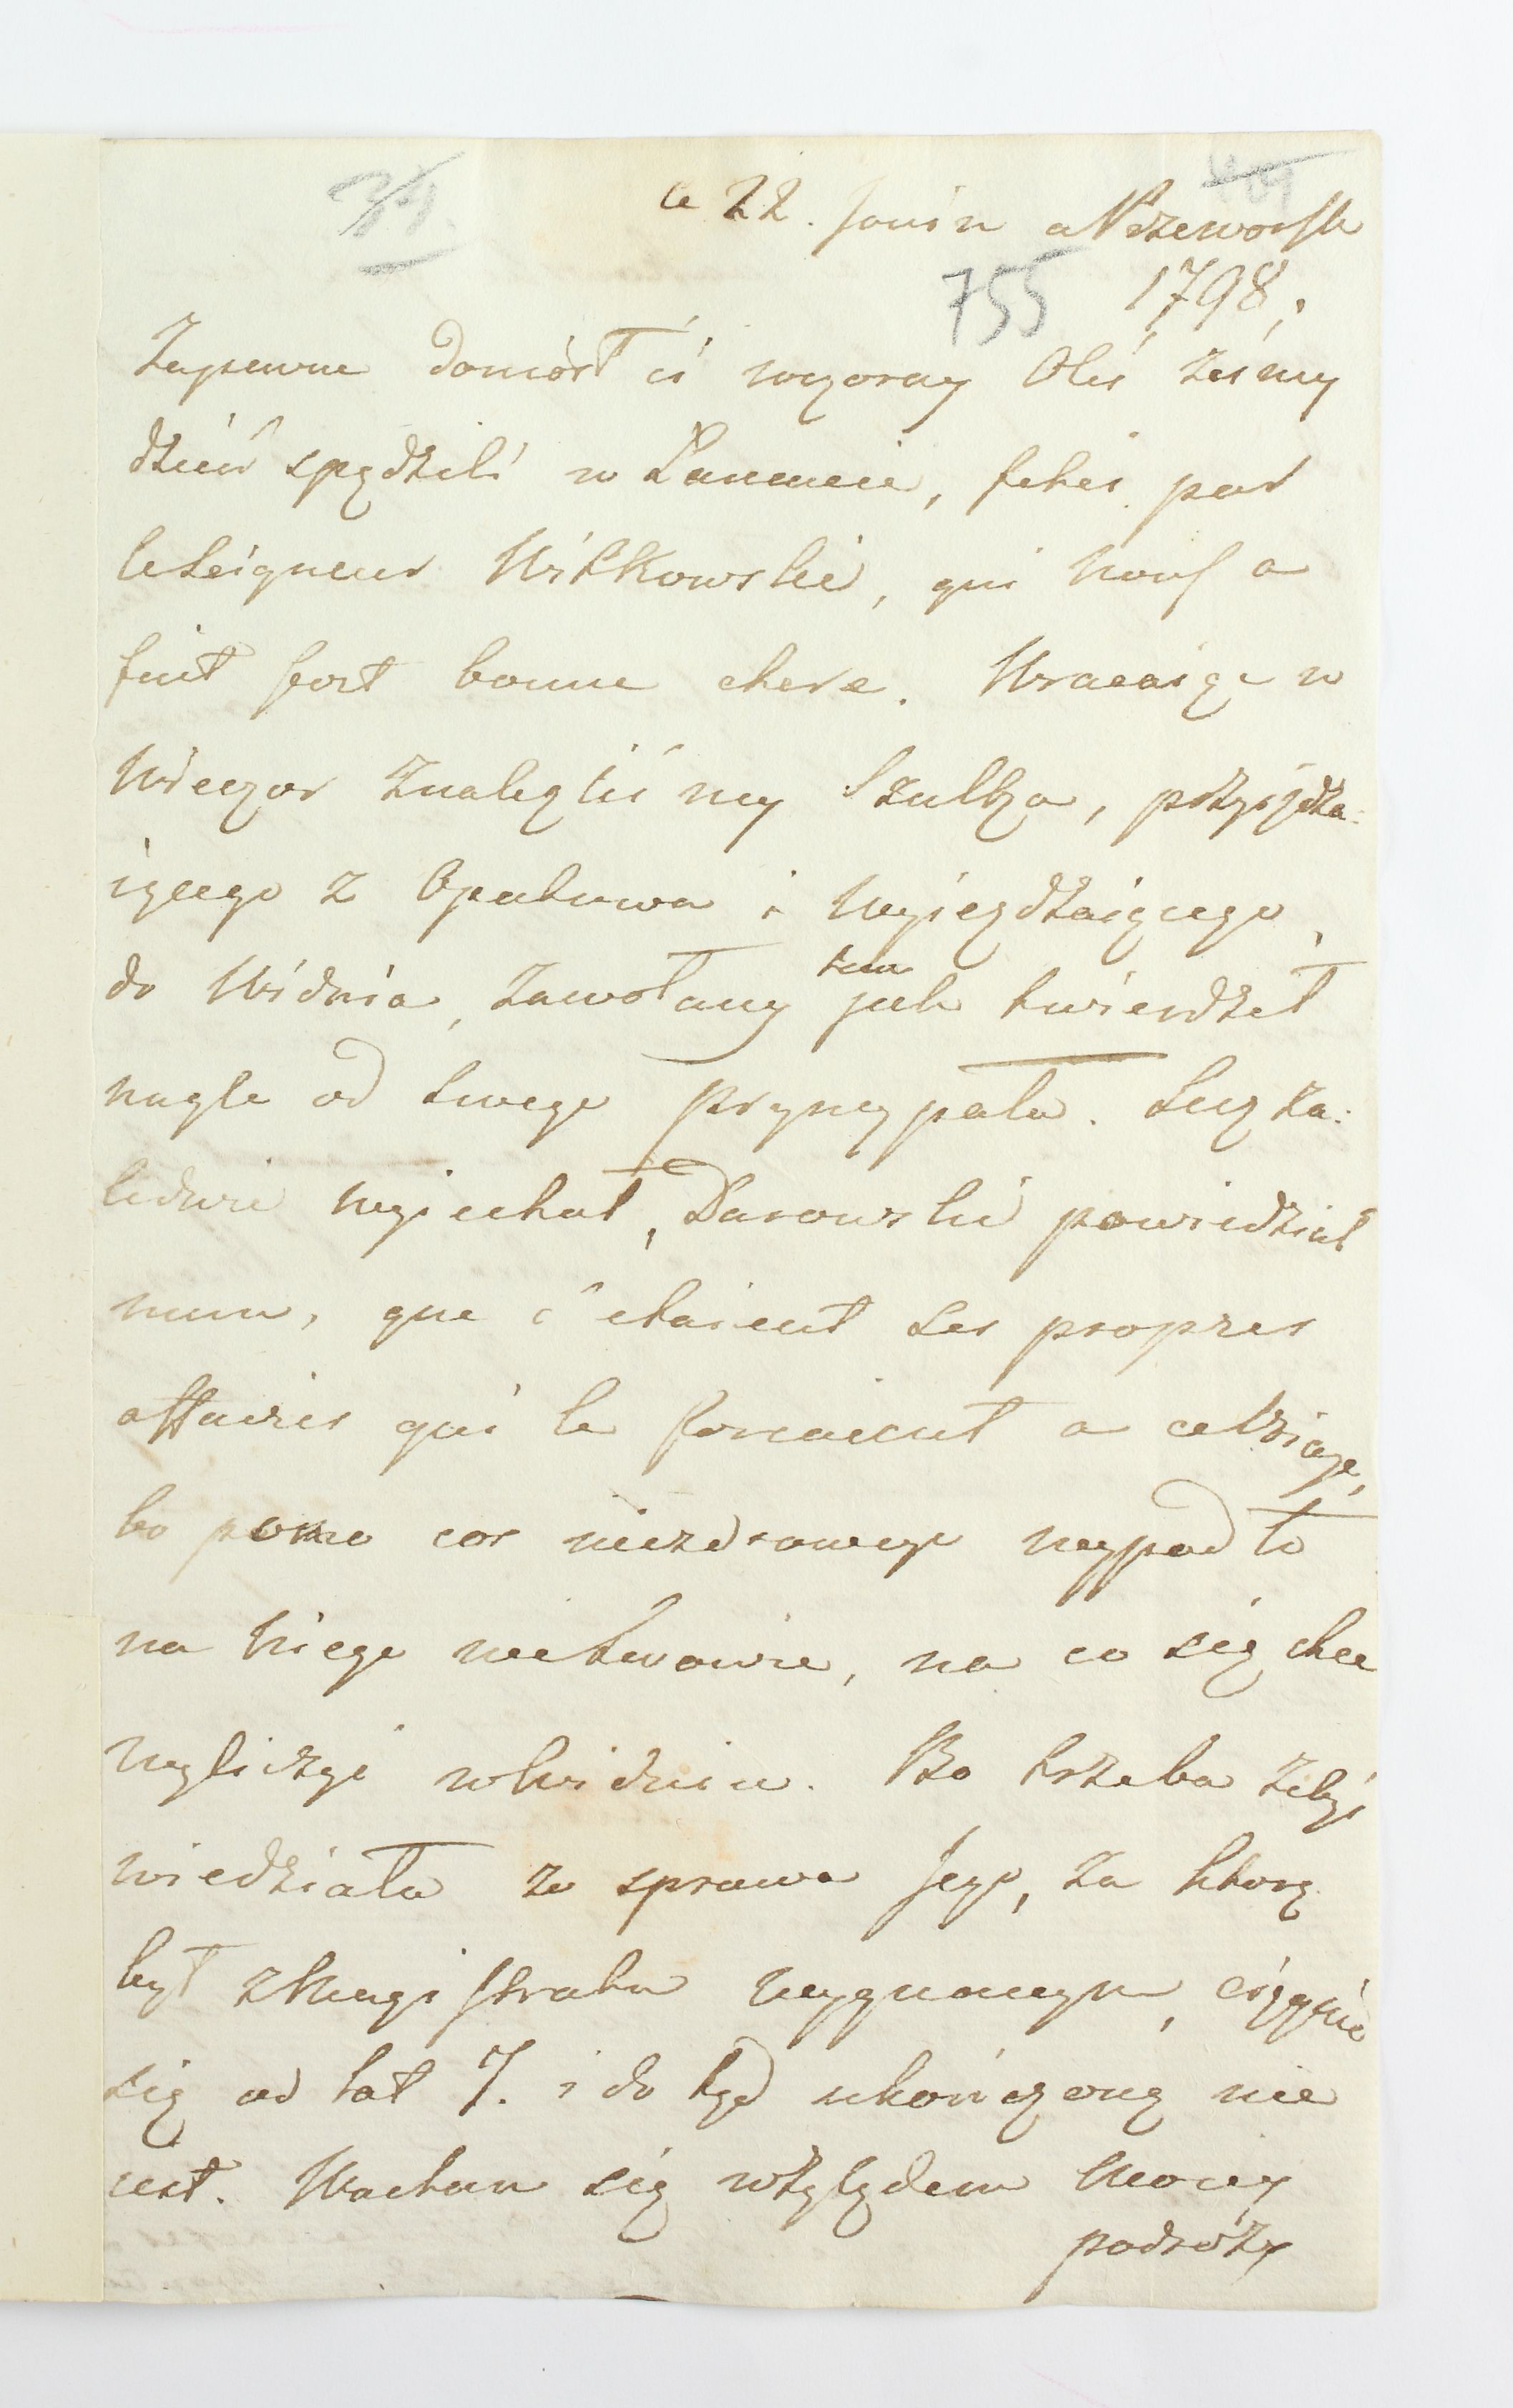 le 22. Jouin a Przeworsk
755 1798,
Zapewne doniosł ci wczoray Oleś żeśmy
dzień spędzili w Łancucie, fetes par
le Seigneur Witkowski, qui nous a
fait fort bonne chere. Wracaiąc w
wieczor znalezliśmy Szultza, przyiężdza-
iącego z Opatowa i wyiezdzaiącego
do Widnia, zawołany tam jak twierdził
nagle od swego pryncypała. Lecz za-
ledwie wyiechał, Darowski powiedział
nam, que c'etaient ses propres
affaires qui le forcaient a ce voiage,
bo pono cos niezdrowego wypadło
na niego we Lwowie, na co się chce
wyliczyć w Widniu. Bo trzeba żebyś
wiedziała ze sprawa Jego, za ktorą
był z Magistratu wygnanym, ciągnie
się od lat 7. i do tąd ukończoną nie
iest. Wacham się względem moiey
podróży